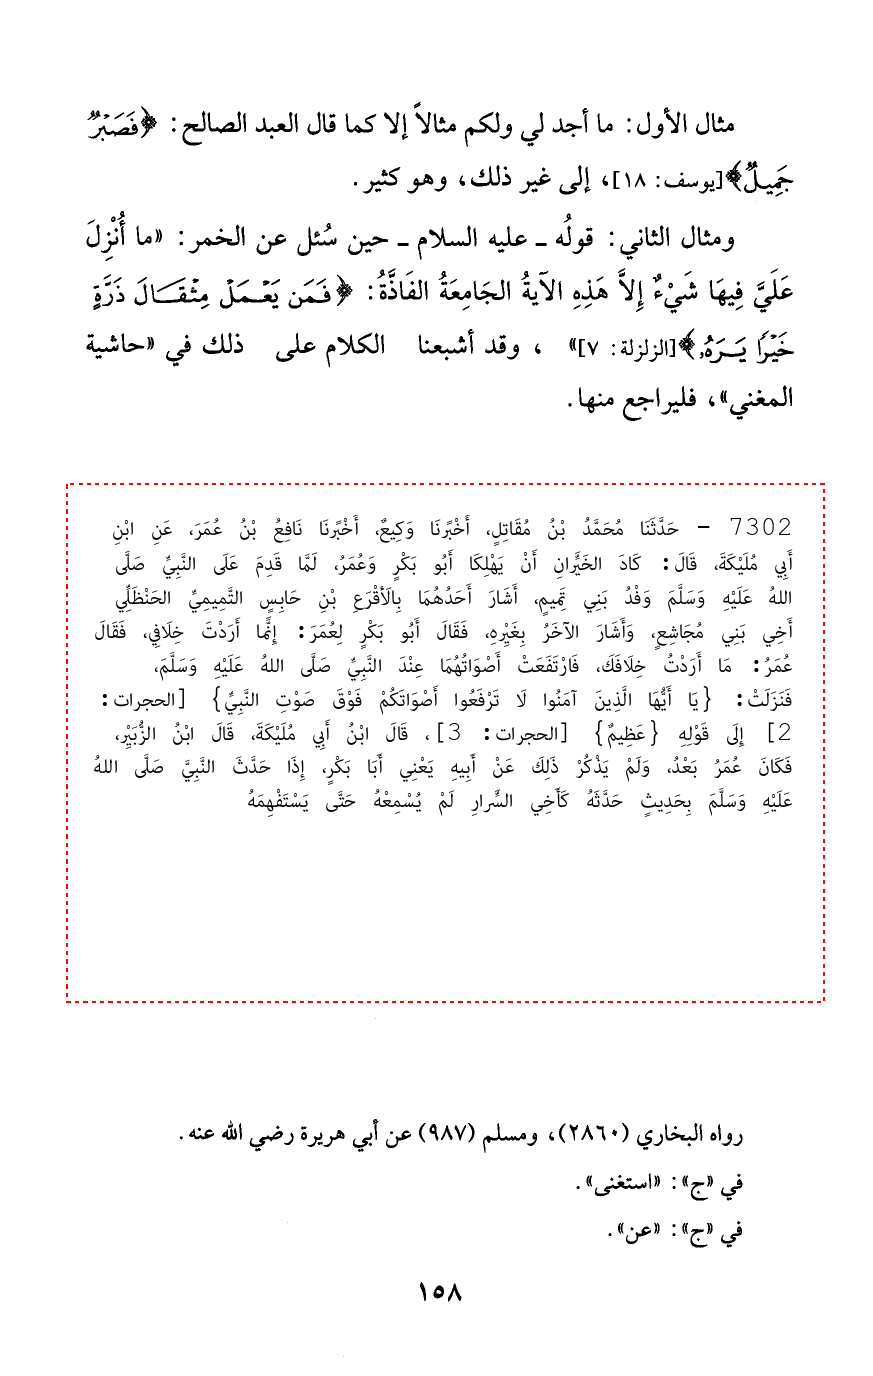 مثال الأول: ما أجد لي ولكم مثالاً إلا كما قال العبد الصالح: ﴿فَصَبْرٌ
جَمِيلٌ﴾[يوسف: ١٨]، إلى غير ذلك، وهو كثير.
ومثال الثاني: قولُه ـ عليه السلام ـ حين سُئل عن الخمر: «ما أُنْزِلَ
عَلَيَّ فِيهَا شَيْءٌ إِلاَّ هَذِهِ الآيةُ الجَامِعَةُ الفَاذَّةُ: ﴿فَمَن يَعْمَلْ مِثْقَالَ ذَرَّةٍ
خَيْرًا يَرَهُ﴾[الزلزلة: ٧]» ، وقد أشبعنا الكلام على ذلك في «حاشية
المغني»، فليراجع منها.
7302 – حَدَّثَنَا مُحَمَّدُ بْنُ مُقَاتِلٍ، أَخْبَرَنَا وَكِيعٌ، أَخْبَرَنَا نَافِعُ بْنُ عُمَرَ، عَنِ ابْنِ
أَبِي مُلَيْكَةَ، قَالَ: كَادَ الخَيِّرَانِ أَنْ يَهْلِكَا أَبُو بَكْرٍ وَعُمَرُ، لَمَّا قَدِمَ عَلَى النَّبِيِّ صَلَّى
اللهُ عَلَيْهِ وَسَلَّمَ وَفْدُ بَنِي تَمِيمٍ، أَشَارَ أَحَدُهُمَا بِالأَقْرَعِ بْنِ حَابِسٍ التَّمِيمِيِّ الحَنْظَلِيِّ
أَخِي بَنِي مُجَاشِعٍ، وَأَشَارَ الآخَرُ بِغَيْرِهِ، فَقَالَ أَبُو بَكْرٍ لِعُمَرَ: إِنَّمَا أَرَدْتَ خِلَافِي، فَقَالَ
عُمَرُ: مَا أَرَدْتُ خِلَافَكَ، فَارْتَفَعَتْ أَصْوَاتُهُمَا عِنْدَ النَّبِيِّ صَلَّى اللهُ عَلَيْهِ وَسَلَّمَ،
فَنَزَلَتْ: {يَا أَيُّهَا الَّذِينَ آمَنُوا لَا تَرْفَعُوا أَصْوَاتَكُمْ فَوْقَ صَوْتِ النَّبِيِّ} [الحجرات:
2] إِلَى قَوْلِهِ {عَظِيمٌ} [الحجرات: 3]، قَالَ ابْنُ أَبِي مُلَيْكَةَ، قَالَ ابْنُ الزُّبَيْرِ،
فَكَانَ عُمَرُ بَعْدُ، وَلَمْ يَذْكُرْ ذَلِكَ عَنْ أَبِيهِ يَعْنِي أَبَا بَكْرٍ، إِذَا حَدَّثَ النَّبِيَّ صَلَّى اللهُ
عَلَيْهِ وَسَلَّمَ بِحَدِيثٍ حَدَّثَهُ كَأَخِي السِّرَارِ لَمْ يُسْمِعْهُ حَتَّى يَسْتَفْهِمَهُ
رواه البخاري (٢٨٦٠)، ومسلم (٩٨٧) عن أبي هريرة رضي الله عنه.
في «ج»: «استغنى».
في «ج»: «عن».
١٥٨